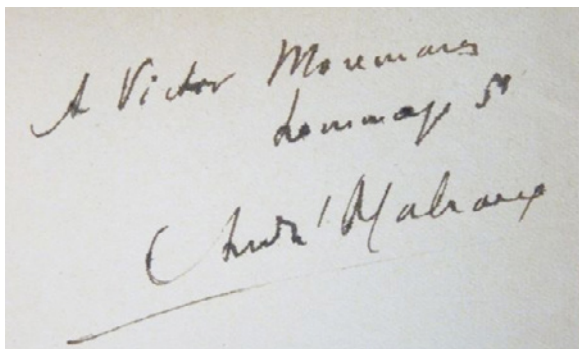 A Victor Moremans
hommage
André Malraux